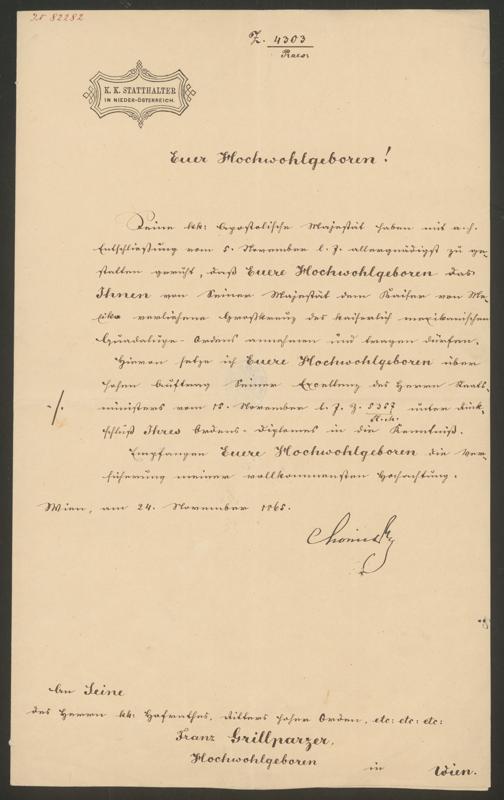 IN 82282
Z. 4303
Praes.
K. K. STATTHALTER
IN NIEDER-ÖSTERREICH.
Euer Hochwohlgeboren!
Seine kk: Apostolische Majestät haben mit a. h.
Entschließung vom 5. November l. J. allergnädigst zu ge-
statten geruht, daß Euere Hochwohlgeboren das
Ihnen von Seiner Majestät dem Kaiser von Me-
xiko verliehene Großkreuz des kaiserlich mexikanischen
Guadalupe Ordens annehmen und tragen dürfen.
Hievon setze ich Euere Hochwohlgeboren über
hohen Auftrag Seiner Excellenz des Herrn Staats-
./.
ministers vom 15. November l. J. Z. 5357 unter Rück-
schluß Ihres Ordens-Diplomes in die Kenntniß.
Empfangen Euere Hochwohlgeboren die Ver-
sicherung meiner vollkommensten Hochachtung.
Wien, am 24. November 1865.
Chorinsky
An Seine
des Herrn kk: Hofrathes, Ritters hoher Orden, etc: etc: etc:
Franz Grillparzer,
Hochwohlgeboren
in Wien.